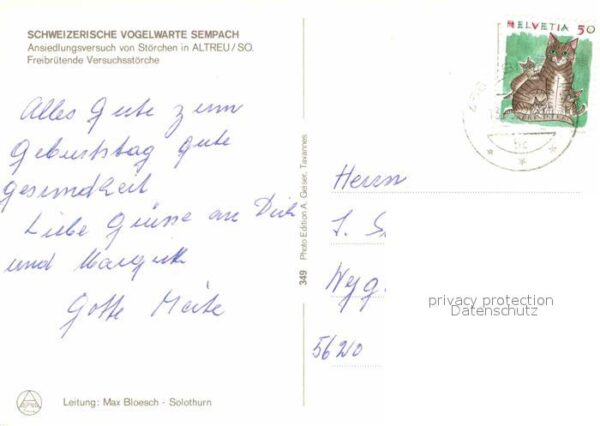 SCHWEIZERISCHE VOGELWARTE SEMPACH
Ansiedlungsversuch von Störchen in ALTREU/SO.
Freibrütende Versuchsstörche
HELVETIA 50
Alles Gute zum
Geburtstag gute
gesundheit
Liebe Grüsse an Dich
und Margrith
Gotte Meite
349 Photo Edition A. Geiser, Tavannes
Herrn
J. S
Wyg.
5620
privacy protection
Datenschutz
Leitung: Max Bloesch - Solothurn